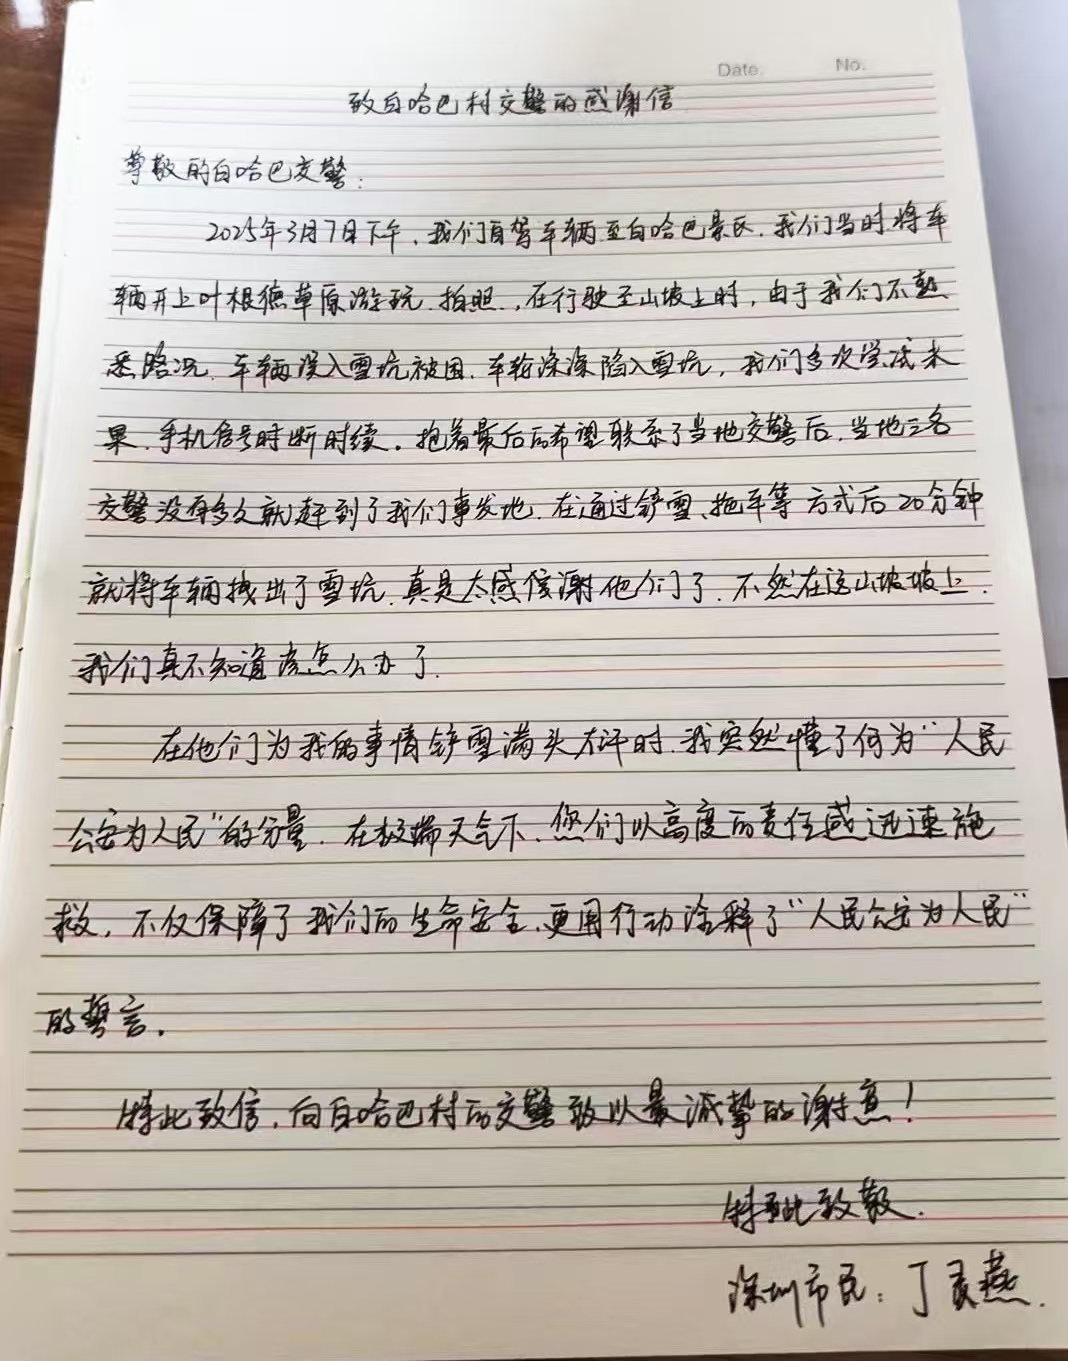 Date.
No.
致白哈巴村交警的感谢信
尊敬的白哈巴交警：
2025年3月7日下午，我们自驾车辆至白哈巴景区，我们当时将车
辆开上叶根德草原游玩、拍照，在行驶至山坡上时，由于我们不熟
悉路况，车辆没入雪坑被困，车轮深深陷入雪坑，我们多次尝试未
果，手机信号时断时续，抱着最后的希望联系了当地交警后，当地三名
交警没有多久就赶到了我们事发地，在通过铲雪、拖车等方式后20分钟
就将车辆拽出了雪坑，真是太感谢他们了，不然在这山坡坡上，
我们真不知道该怎么办了。
在他们为我的事情铲雪满头大汗时，我突然懂了何为“人民
公安为人民”的分量，在极端天气下，您们以高度的责任感迅速施
救，不仅保障了我们的生命安全，更用行动诠释了“人民公安为人民”
的誓言。
特此致信，向白哈巴村的交警致以最诚挚的谢意！
特此致敬。
深圳市民：丁灵燕.